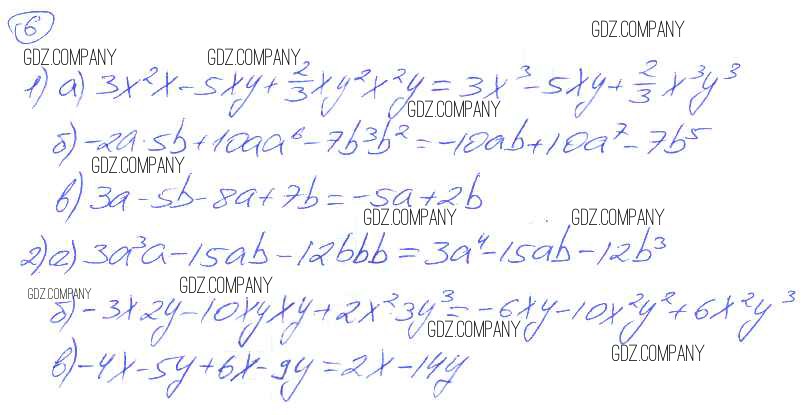 6
GDZ.COMPANY
GDZ.COMPANY GDZ.COMPANY
1) а) 3x²x - 5xy + 2/3 xy²x²y = 3x³ - 5xy + 2/3 x³y³
GDZ.COMPANY
б) -2a·5b + 10aa⁶ - 7b³b² = -10ab + 10a⁷ - 7b⁵
GDZ.COMPANY
в) 3a - 5b - 8a + 7b = -5a + 2b
GDZ.COMPANY GDZ.COMPANY
2) а) 3a³a - 15ab - 12bbb = 3a⁴ - 15ab - 12b³
GDZ.COMPANY GDZ.COMPANY
б) -3x2y - 10xyxy + 2x²3y³ = -6xy - 10x²y² + 6x²y³
GDZ.COMPANY
в) -4x - 5y + 6x - 9y = 2x - 14y
GDZ.COMPANY